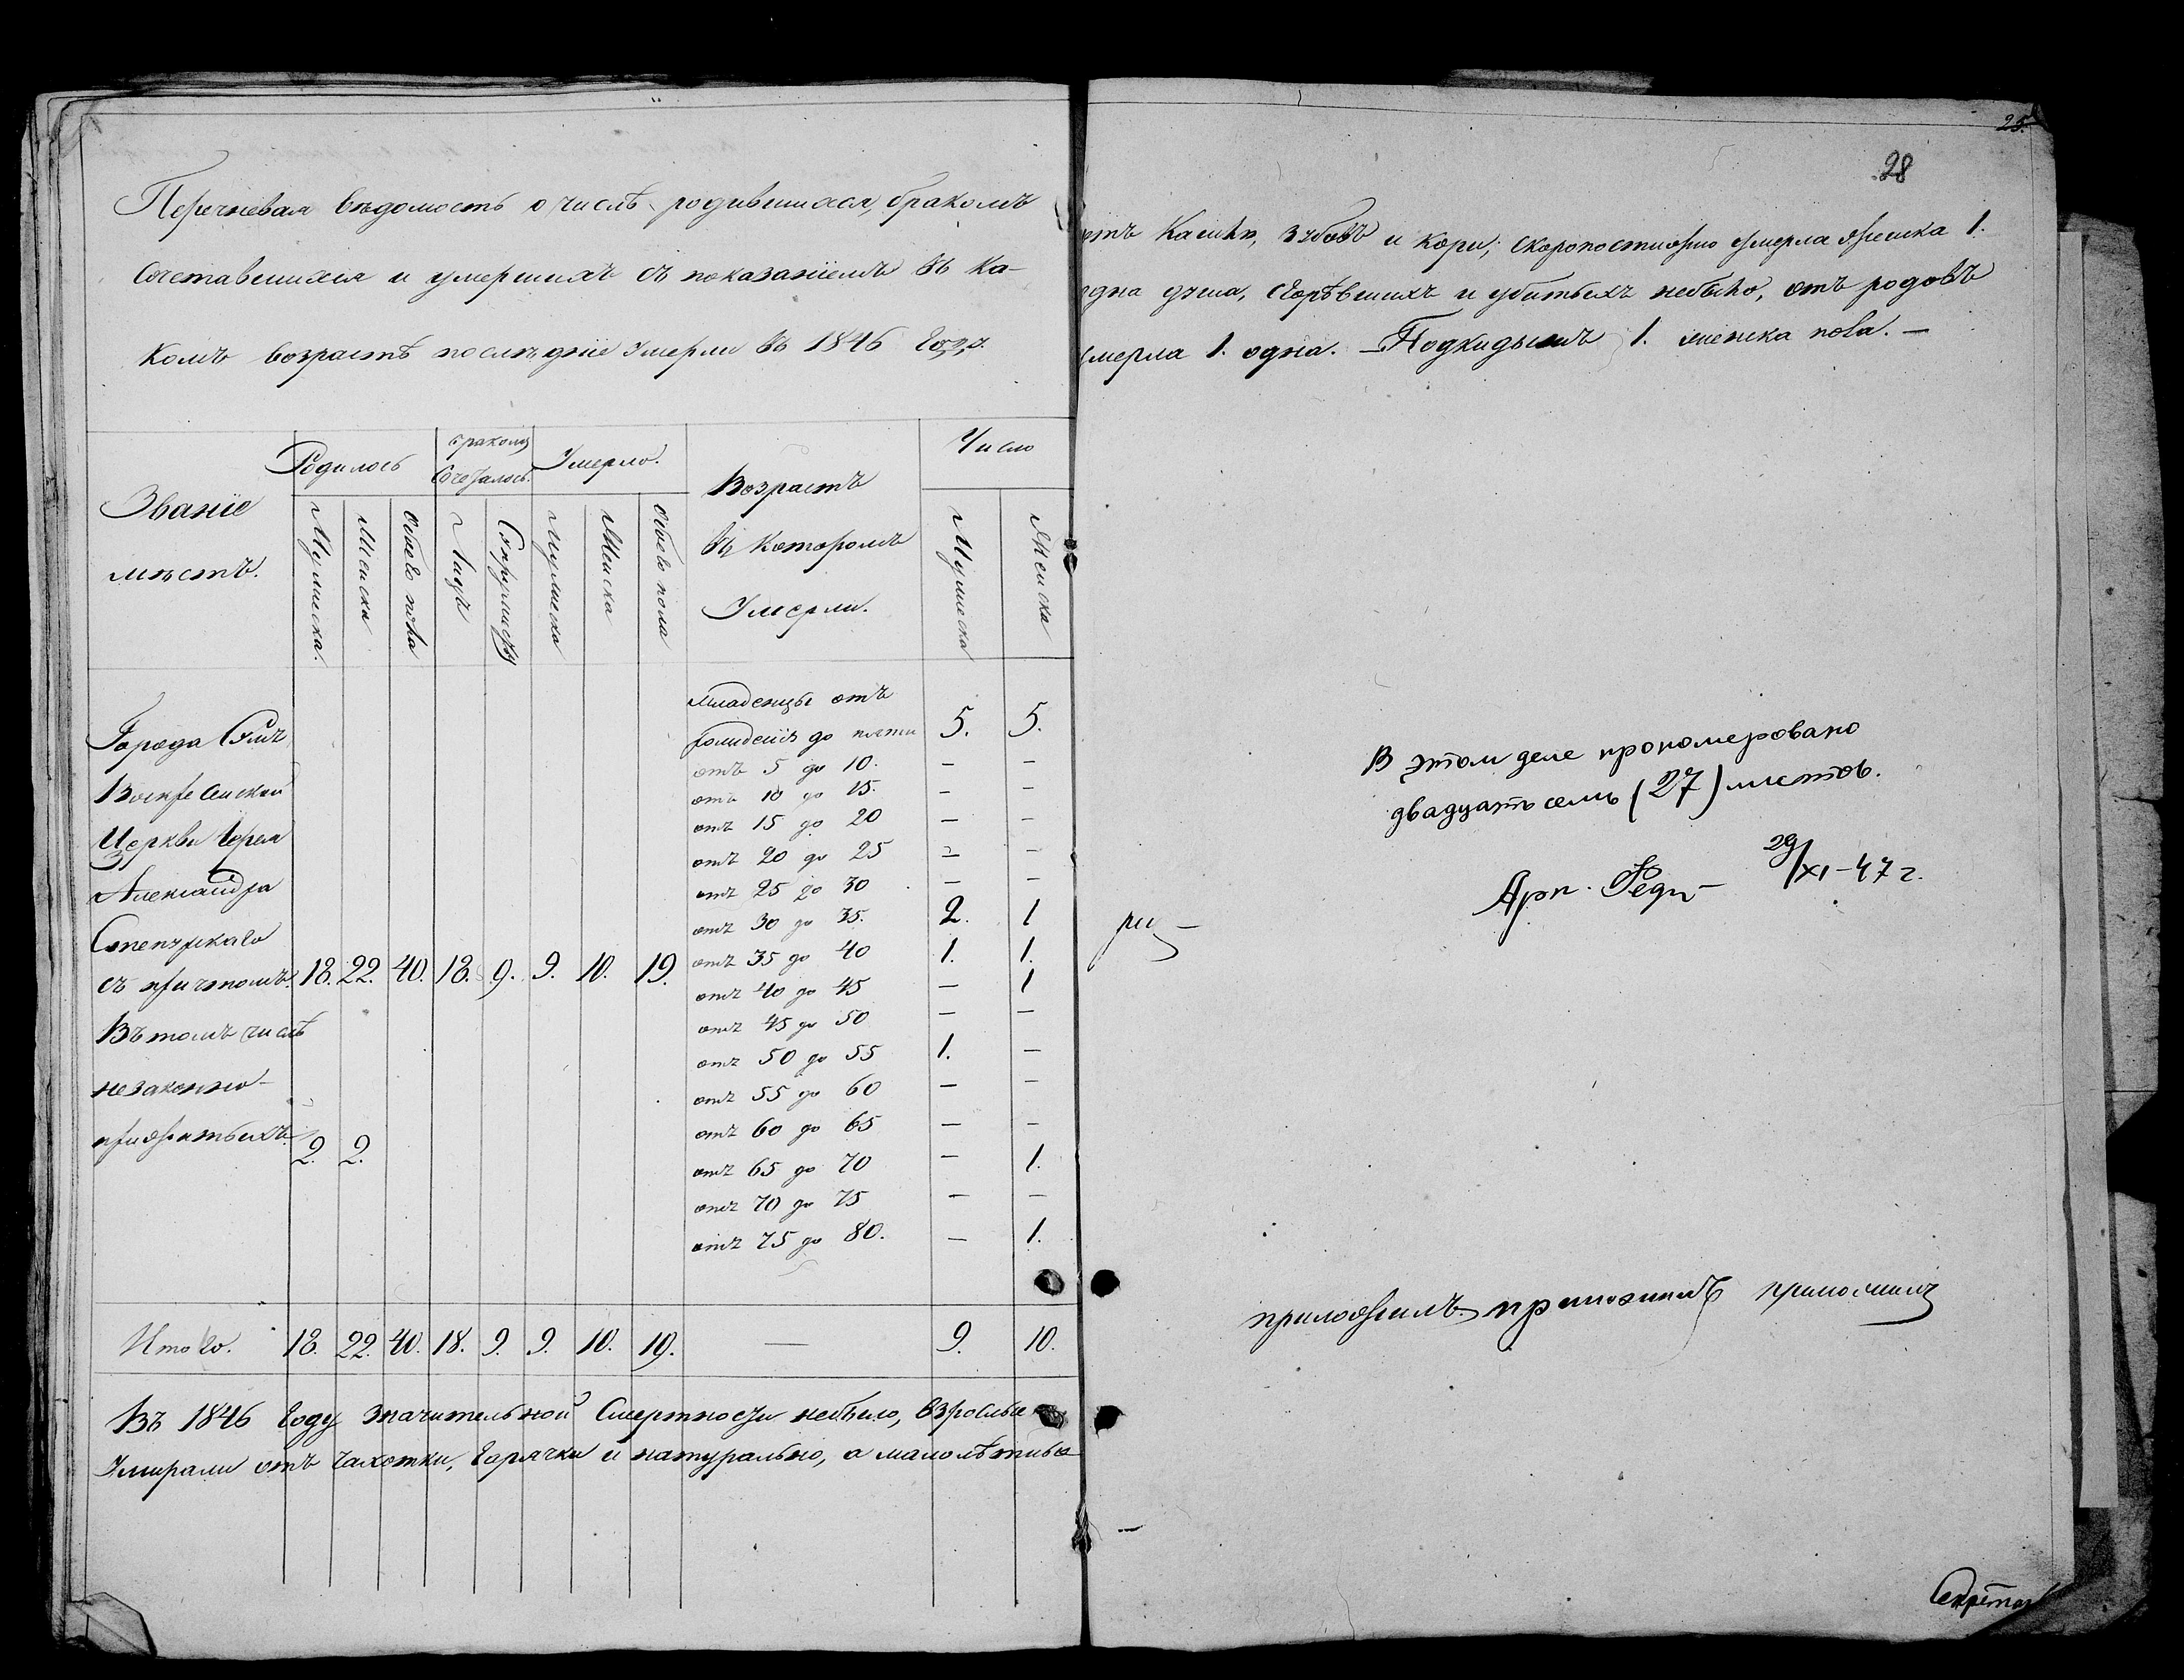 Перечневая вѣдомость о числѣ родившихся, бракомъ
сочетавшихся и умершихъ съ показаніемъ въ ка-
комъ возрастѣ послѣдніе умерли въ 1846 году
Званіе
мѣстъ.
Родилось
бракомъ
сочеталось.
Умерло.
Возрастъ
въ которомъ
умерли.
Число
Мужеска.
Женска
обоего пола
Лицъ
Супружествъ
Мужеска
Женска
обоего пола
Мужеска
Женска
Города
Воскресенской
Церкви Іерея
Александра
съ причтомъ. 18. 22. 40. 18. 9. 9. 10. 19.
Въ томъ числѣ
незаконно-
прижитыхъ. 2. 2.
Младенцы отъ
рожденія до пяти 5. 5.
отъ 5 до 10. — —
отъ 10 до 15. — —
отъ 15 до 20 — —
отъ 20 до 25 — —
отъ 25 до 30 — —
отъ 30 до 35. 2. 1
отъ 35 до 40 1. 1.
отъ 40 до 45 — 1
отъ 45 до 50 — —
отъ 50 до 55 1. —
отъ 55 до 60 — —
отъ 60 до 65 — —
отъ 65 до 70 — 1.
отъ 70 до 75 — —
отъ 75 до 80. — 1.
Итого. 18. 22. 40. 18. 9. 9. 10. 19. — 9. 10.
Въ 1846 году значительной смертности небыло, взрослые
умирали отъ чахотки, горячки и натурально, а малолѣтные
25.
28
отъ кашля, зубовъ и кори; скоропостижно умерла женска 1.
одна душа, сгорѣвшихъ и убитыхъ небыло, отъ родовъ
умерла 1. одна. — Подкидышъ 1. женска пола. —
В этом деле прономеровано
двадцать семь (27) листов.
29/XI-47 г.
приложилъ приложилъ приложилъ
Секретарь